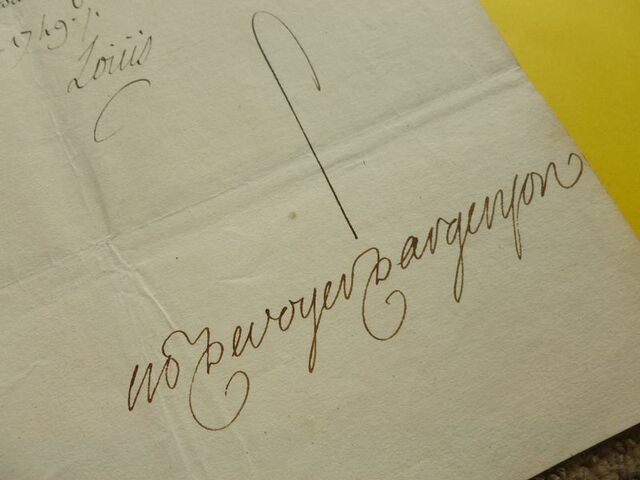 1749.
Louis
de voyer dargenson